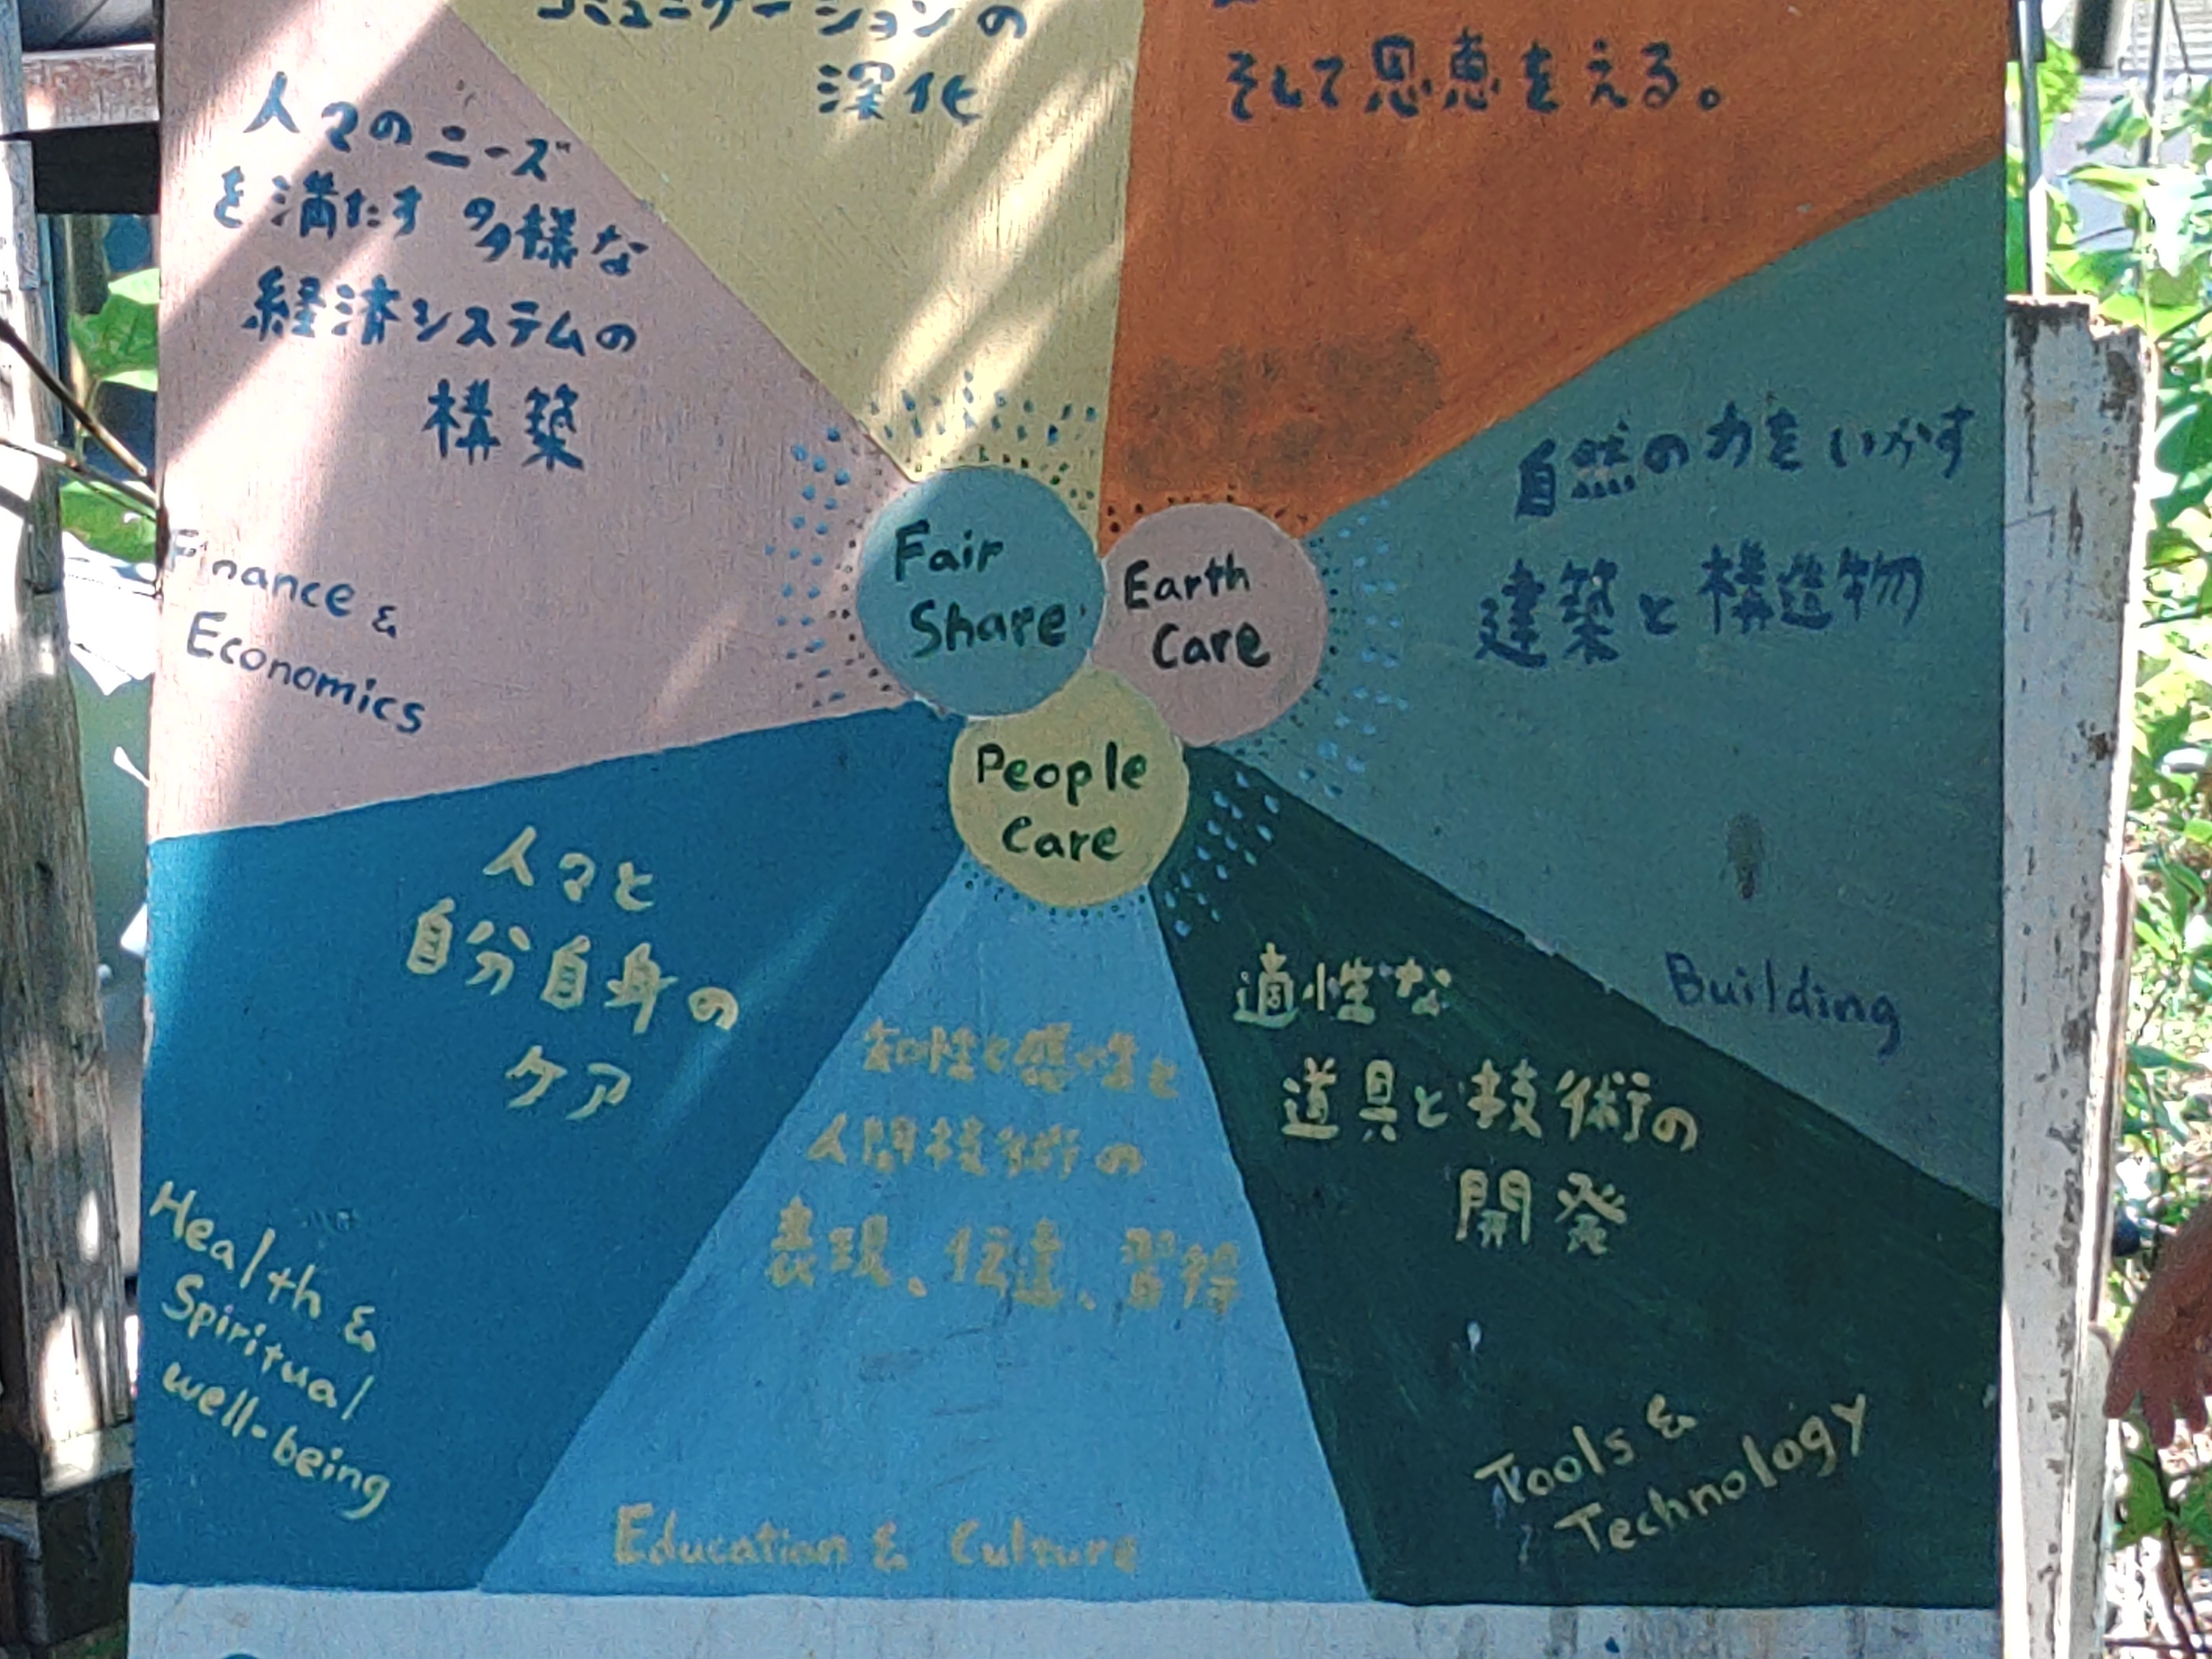 コミュニケーションの
深化
そして恩恵をえる。
人々のニーズ
を満たす多様な
経済システムの
構築
Finance &
Economics
自然の力をいかす
建築と構造物
Building
Fair
Share
Earth
Care
People
Care
人々と
自分自身の
ケア
Health &
Spiritual
well-being
知性と感性と
人間技術の
表現、伝達、習得
Education & Culture
適性な
道具と技術の
開発
Tools &
Technology